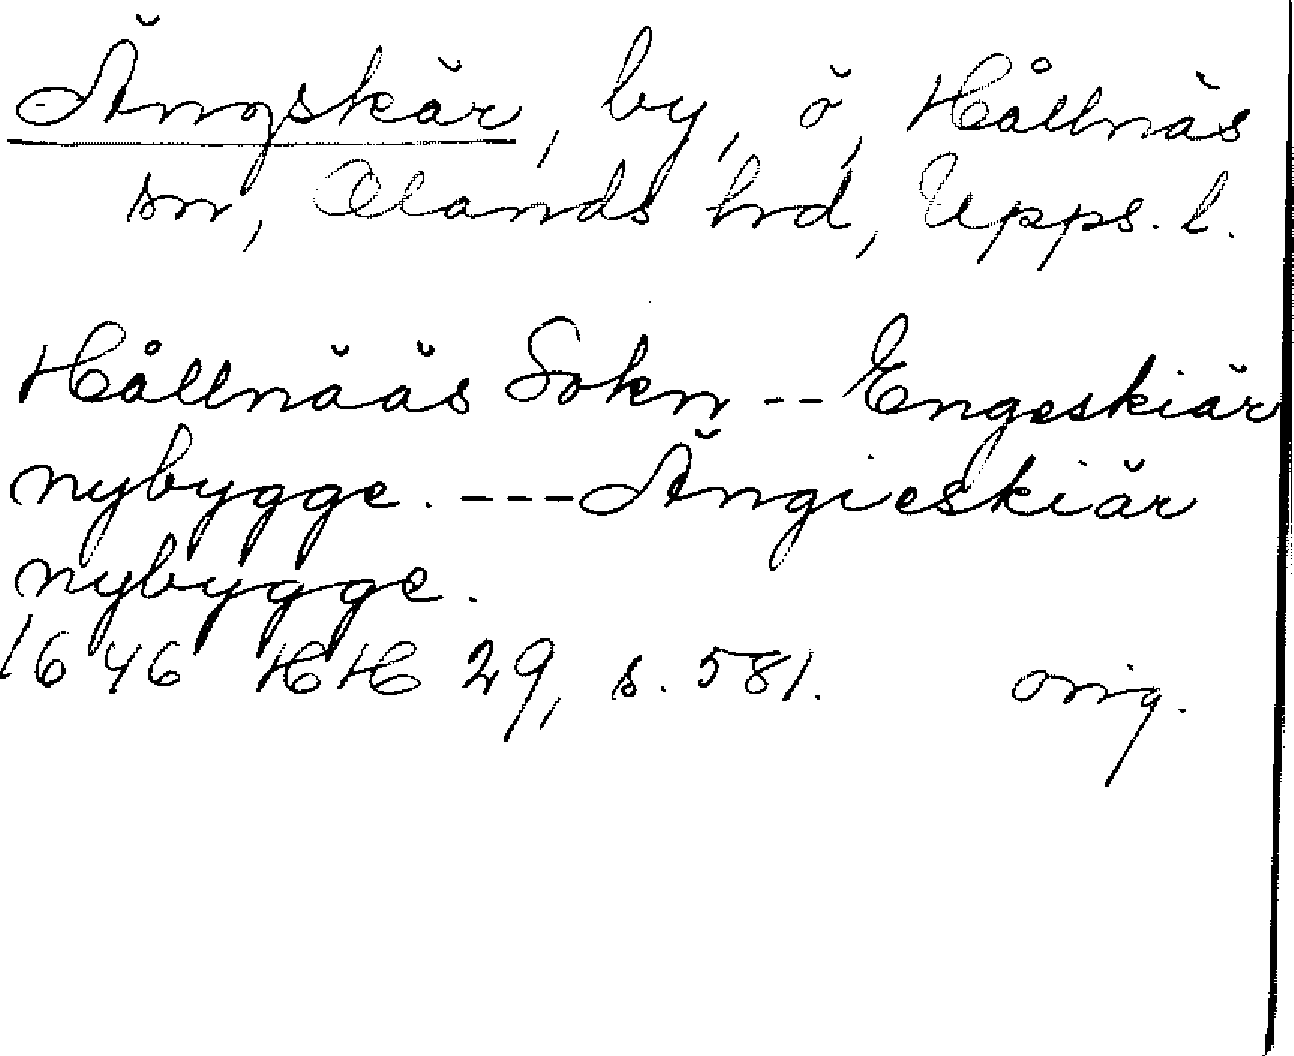 Ängskär, by, ö, Hållnäs
sn, Olands hrd, Upps. l.
Hållnääs Sokn -- Engeskiär
nybygge. --- Ängieskiär
nybygge.
1646 HH 29, s. 581. orig.